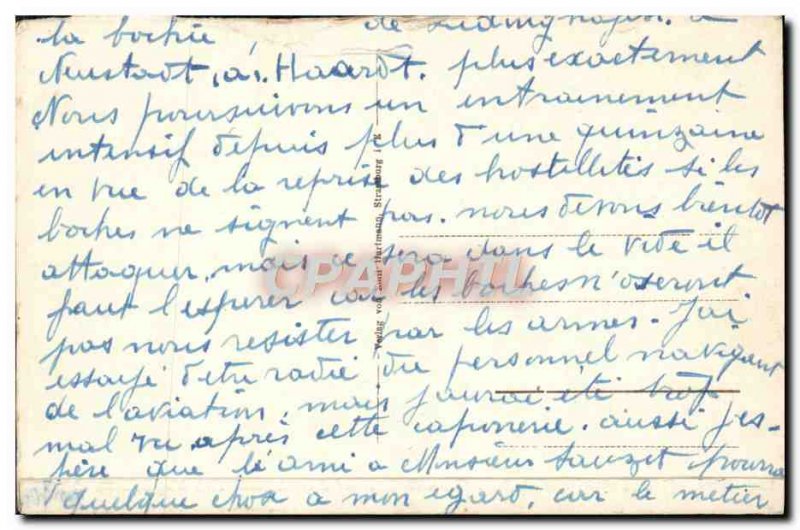 la bochie, de Ludwighafen. a
Neustadt, a. Haardt. plus exactement
Nous poursuivons un entrainement
intensif depuis plus d'une quinzaine
en vue de la reprise des hostilletés si les
boches ne signent pas. nous devons bientot
attaquer, mais ce sera dans le vide il
faut l'esperer car les boches n'oseront
pas nous resister par les armes. J'ai
essayé d'etre radié du personnel navigant
de l'aviation, mais j'aurai été trop
mal vu après cette caponerie. aussi j'es-
père que le ami a Monsieur Sauzet pourra
quelque chose a mon egard, car le métier
Verlag von Hartmann, Strassburg i. E.
CPAPHIL